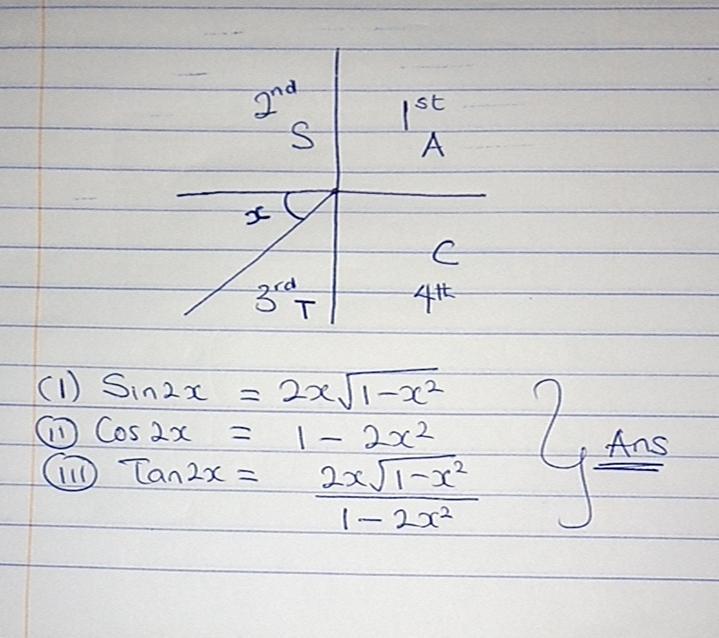 2nd 1st
S A
x C
3rd T 4th
(1) Sin2x = 2x√1-x²
(11) Cos 2x = 1 - 2x²
(111) Tan2x = 2x√1-x²
1 - 2x²
} Ans